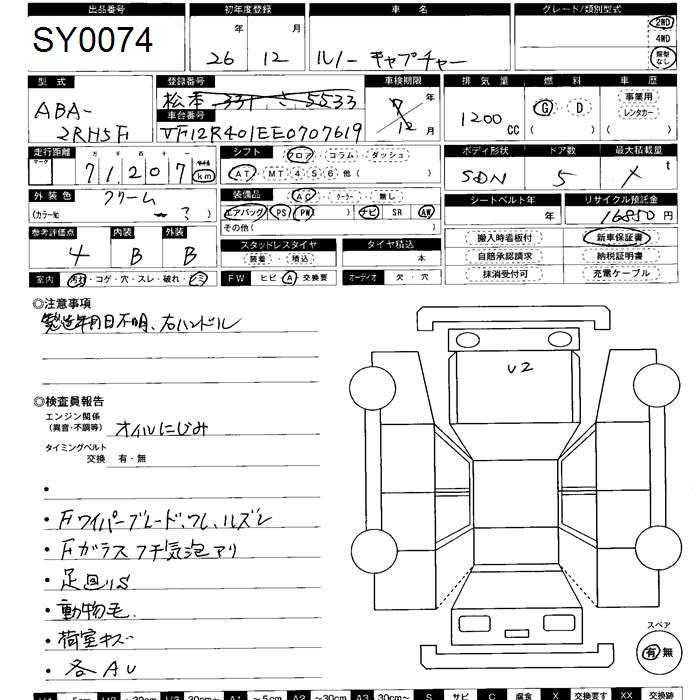 出品番号 初年度登録 車名 グレード/類別型式
SY0074 26年 12月 ルノー キャプチャー 2WD
4WD
類型なし
型式 登録番号 車検期限 排気量 燃料 車歴
ABA-2RH5Fi 松本 331 さ 5533 7年12月 1200CC G D ( ) 事業用 レンタカー ( )
車台番号
VF12R401EE0707619
走行距離 シフト ボディ形状 ドア数 最大積載量
マーク 万 千 百 十 一 フロア コラム ダッシュ
71,207 マイル km AT MT 4 5 6 他 ( ) SDN 5 X t
外装色 装備品 AC クーラー 無し シートベルト年 リサイクル預託金
クリーム エアバッグ PS PW ナビ SR AW 年 16850円
(カラー№ ?) その他 ( )
参考評価点 内装 外装 スタッドレスタイヤ タイヤ積込 搬入時看板付 新車保証書
4 B B 装着 積込 本 自賠承認請求 納税証明書
室内 汚れ・コゲ・穴・スレ・破れ・シミ FW ヒビ A 交換要 オーディオ 欠・穴 抹消受付可 充電ケーブル
◎注意事項
製造年月日不明、右ハンドル
U2
◎検査員報告
エンジン関係
(異音・不調等) オイルにじみ
タイミングベルト
交換 有・無
・
・Fワイパーブレード、ワレ、ハズレ
・Fガラスフチ気泡アリ
・足回りS
・動物毛
・荷室キズ
・各AU
スペア
有 無